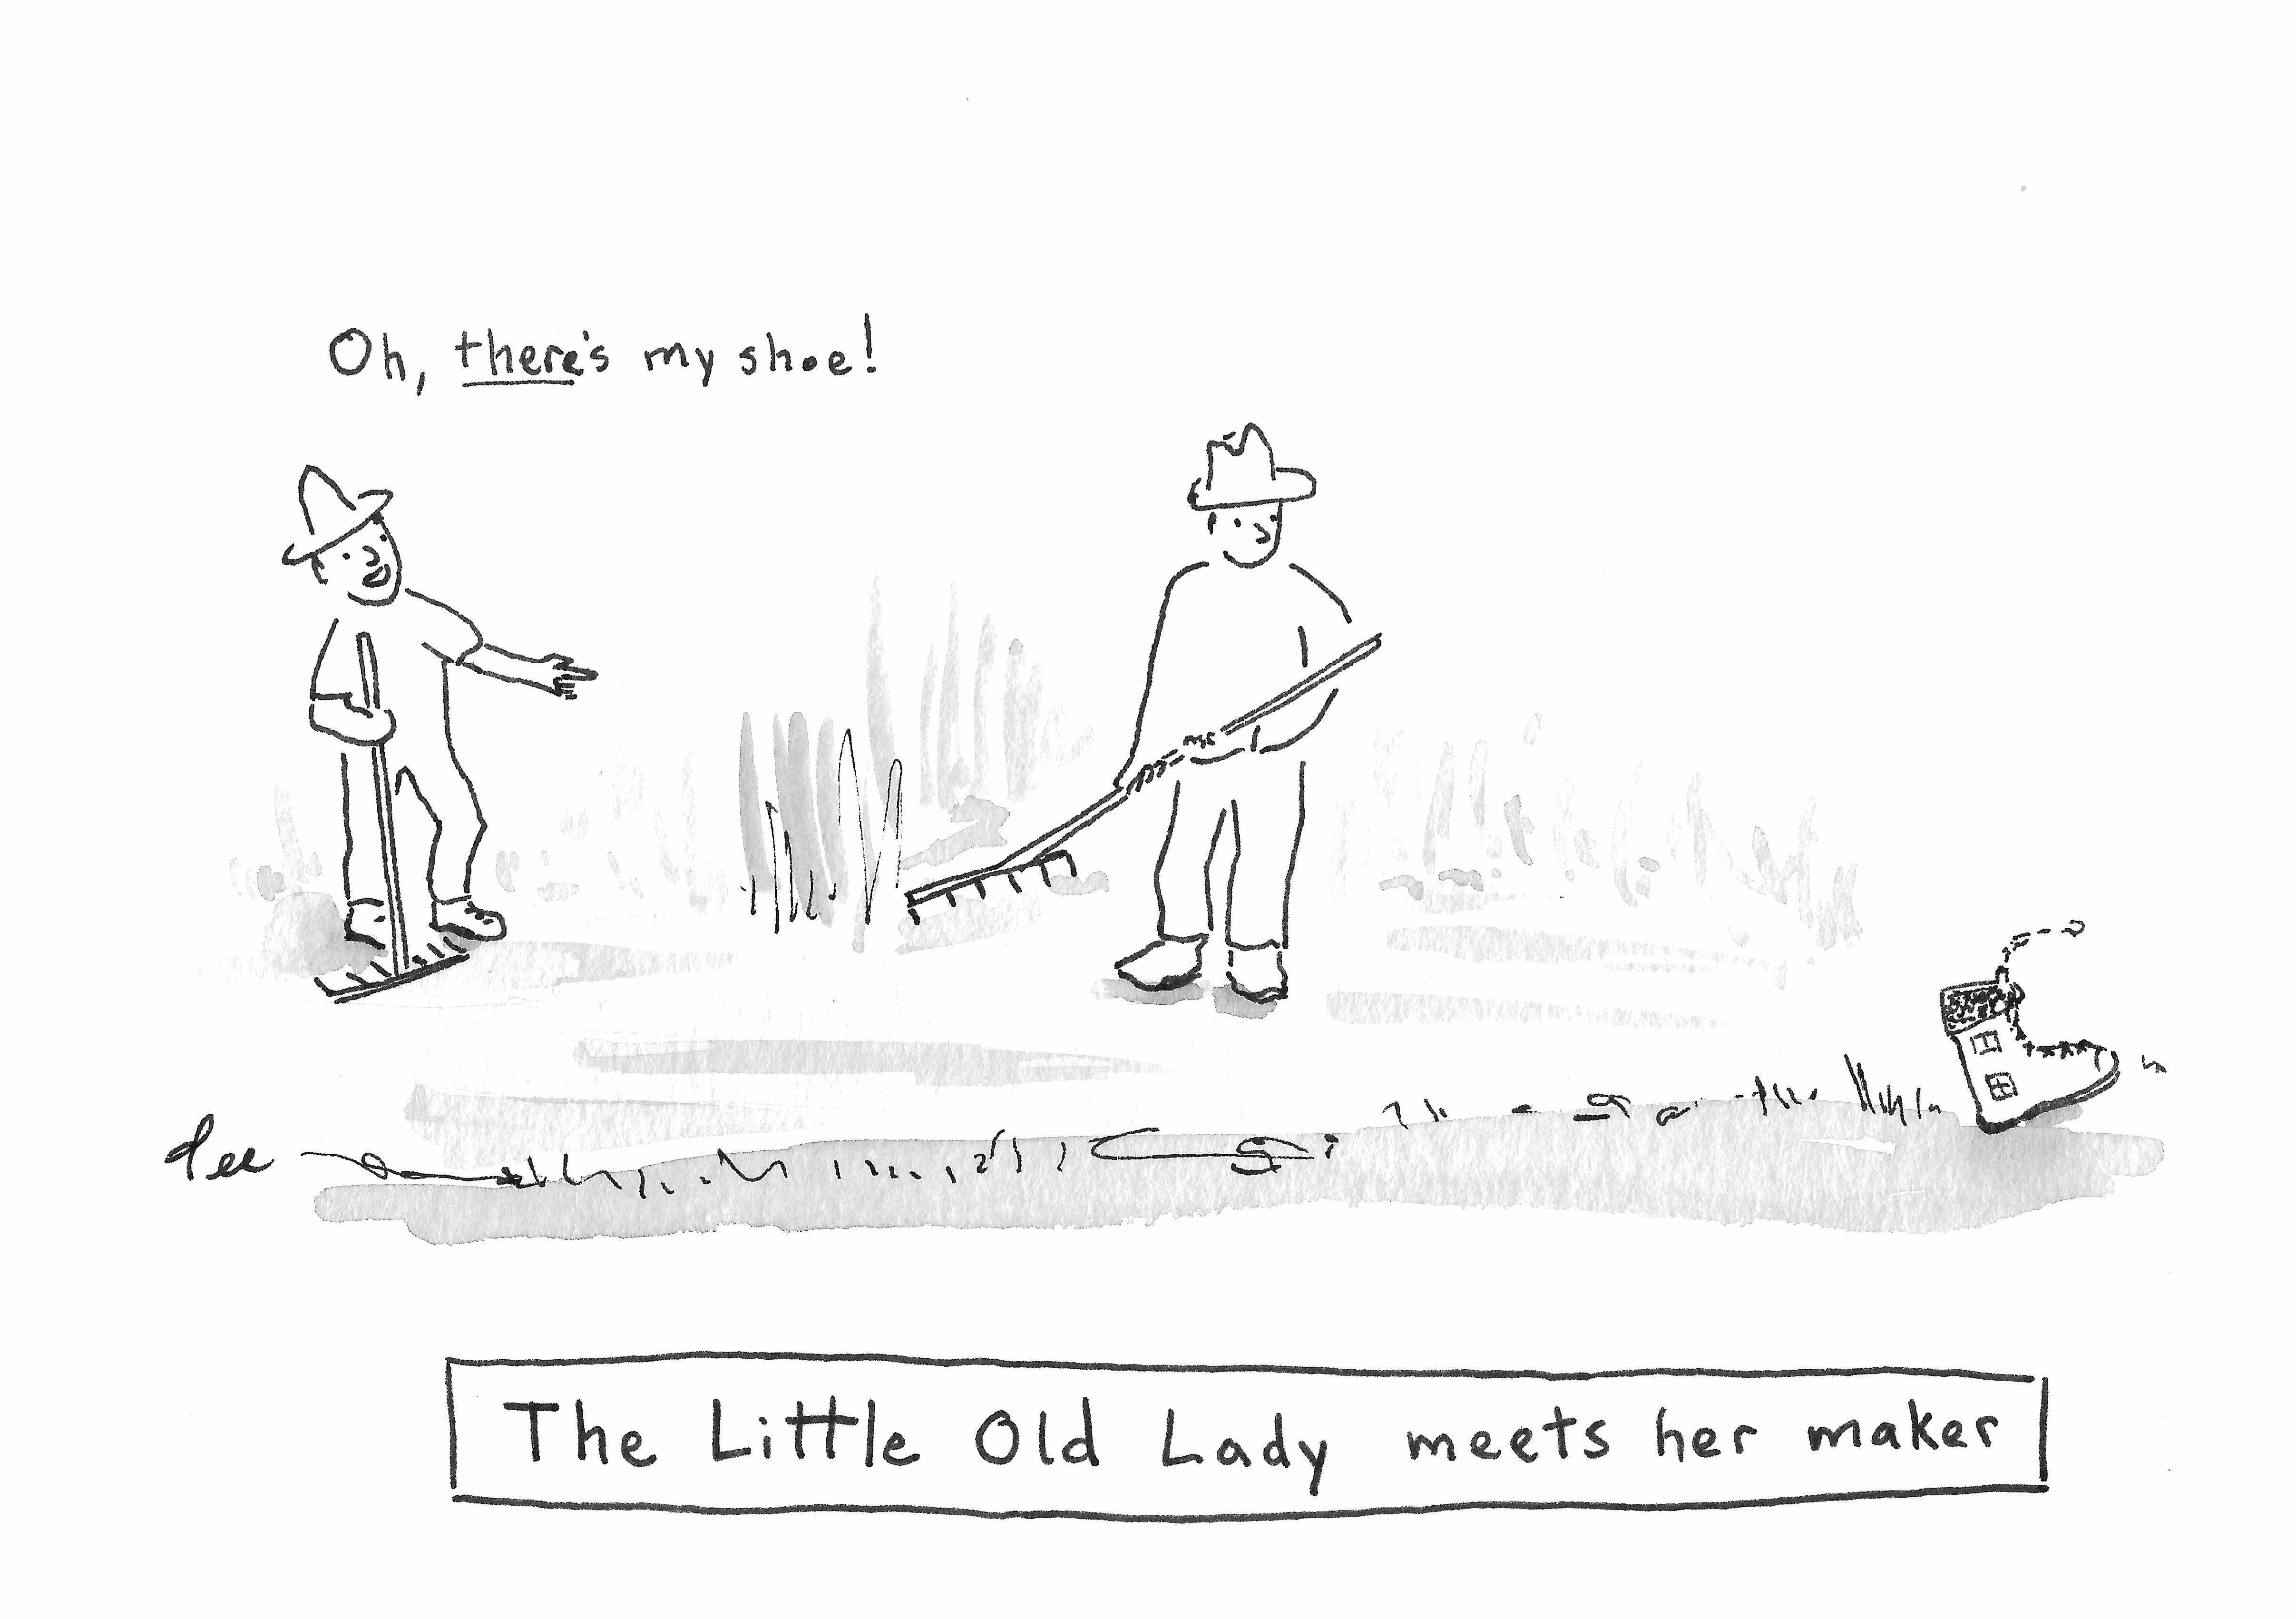 Oh, there's my shoe!
The Little Old Lady meets her maker